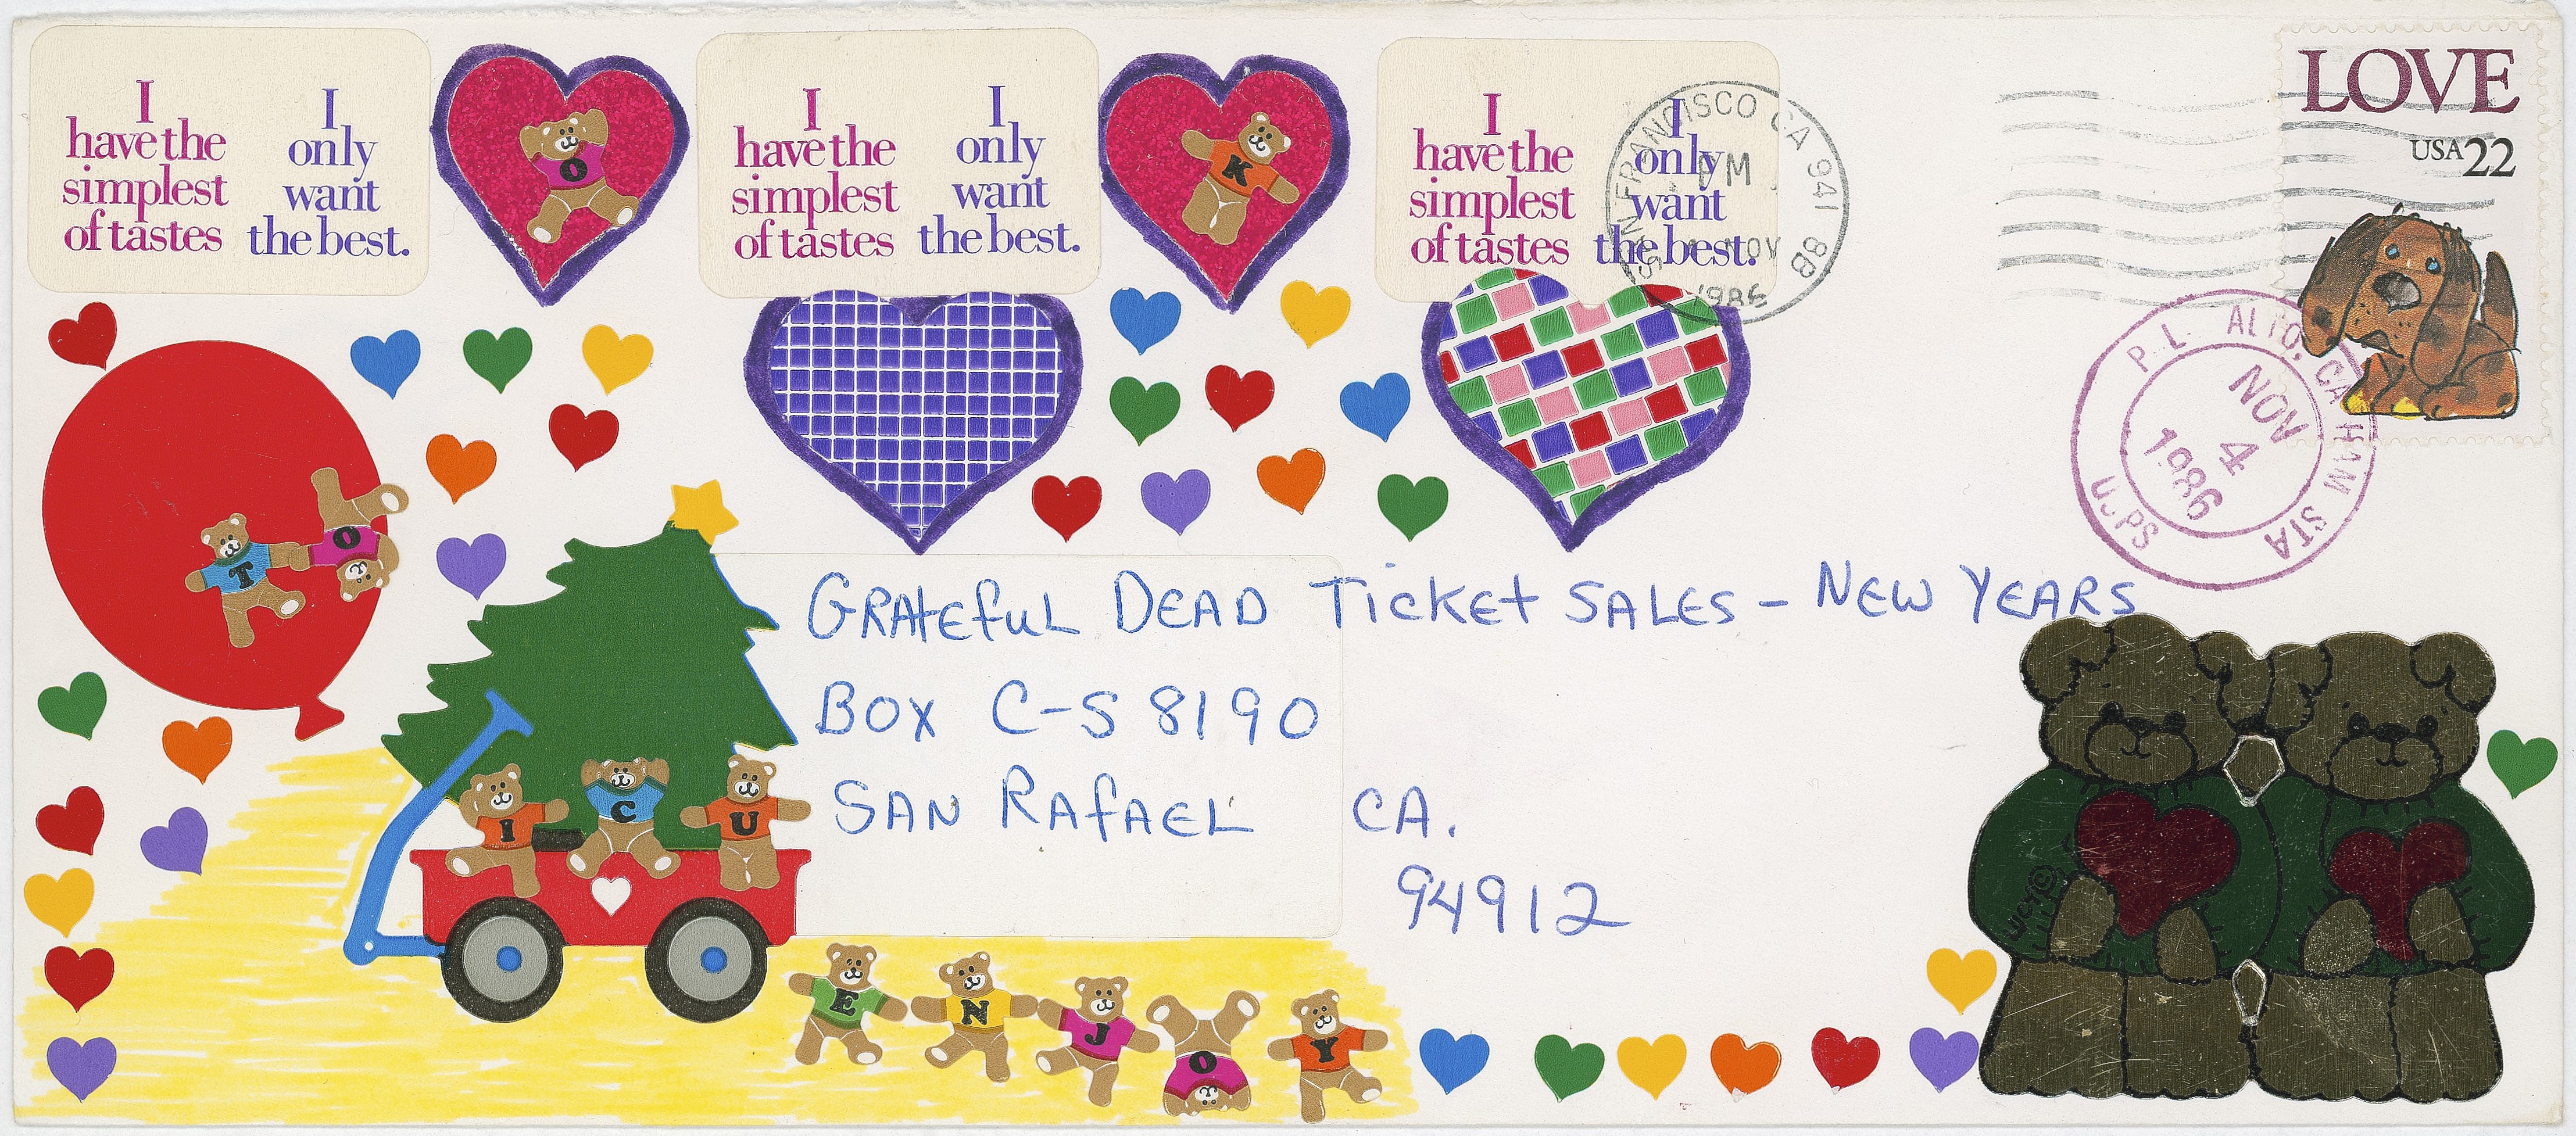 I
have the
simplest
of tastes
I
only
want
the best.
O
I
have the
simplest
of tastes
I
only
want
the best.
K
I
have the
simplest
of tastes
I
only
want
the best.
SAN FRANCISCO CA 941 88
PM
NOV
1986
LOVE
USA 22
CA
NOV
4
1986
STA
USPS
T O
GRAtefuL DEAD Ticket SALES - NEW YEARS
BOX C-S 8190
SAN RAfAEL CA.
94912
I C U
E N J O Y
LUCY ©